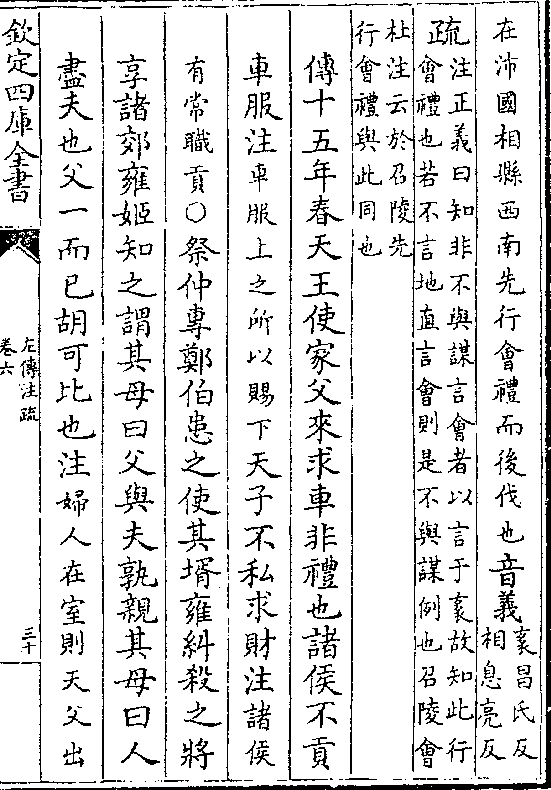 在沛國相縣西南先行會禮而後伐也音義袲昌氏反
相息亮反
疏注正義曰知非不與謀言會者以言于袲故知此行
會禮也若不言地直言會則是不與謀例也召陵會
杜注云於召陵先
行會禮與此同也
傳十五年春天王使家父來求車非禮也諸侯不貢
車服注車服上之所以賜下天子不私求財注諸侯
有常職貢○祭仲專鄭伯患之使其壻雍糾殺之將
享諸郊雍姬知之謂其母曰父與夫孰親其母曰人
盡夫也父一而已胡可比也注婦人在室則天父出
欽定四庫全書
左傳注疏
卷六
三十